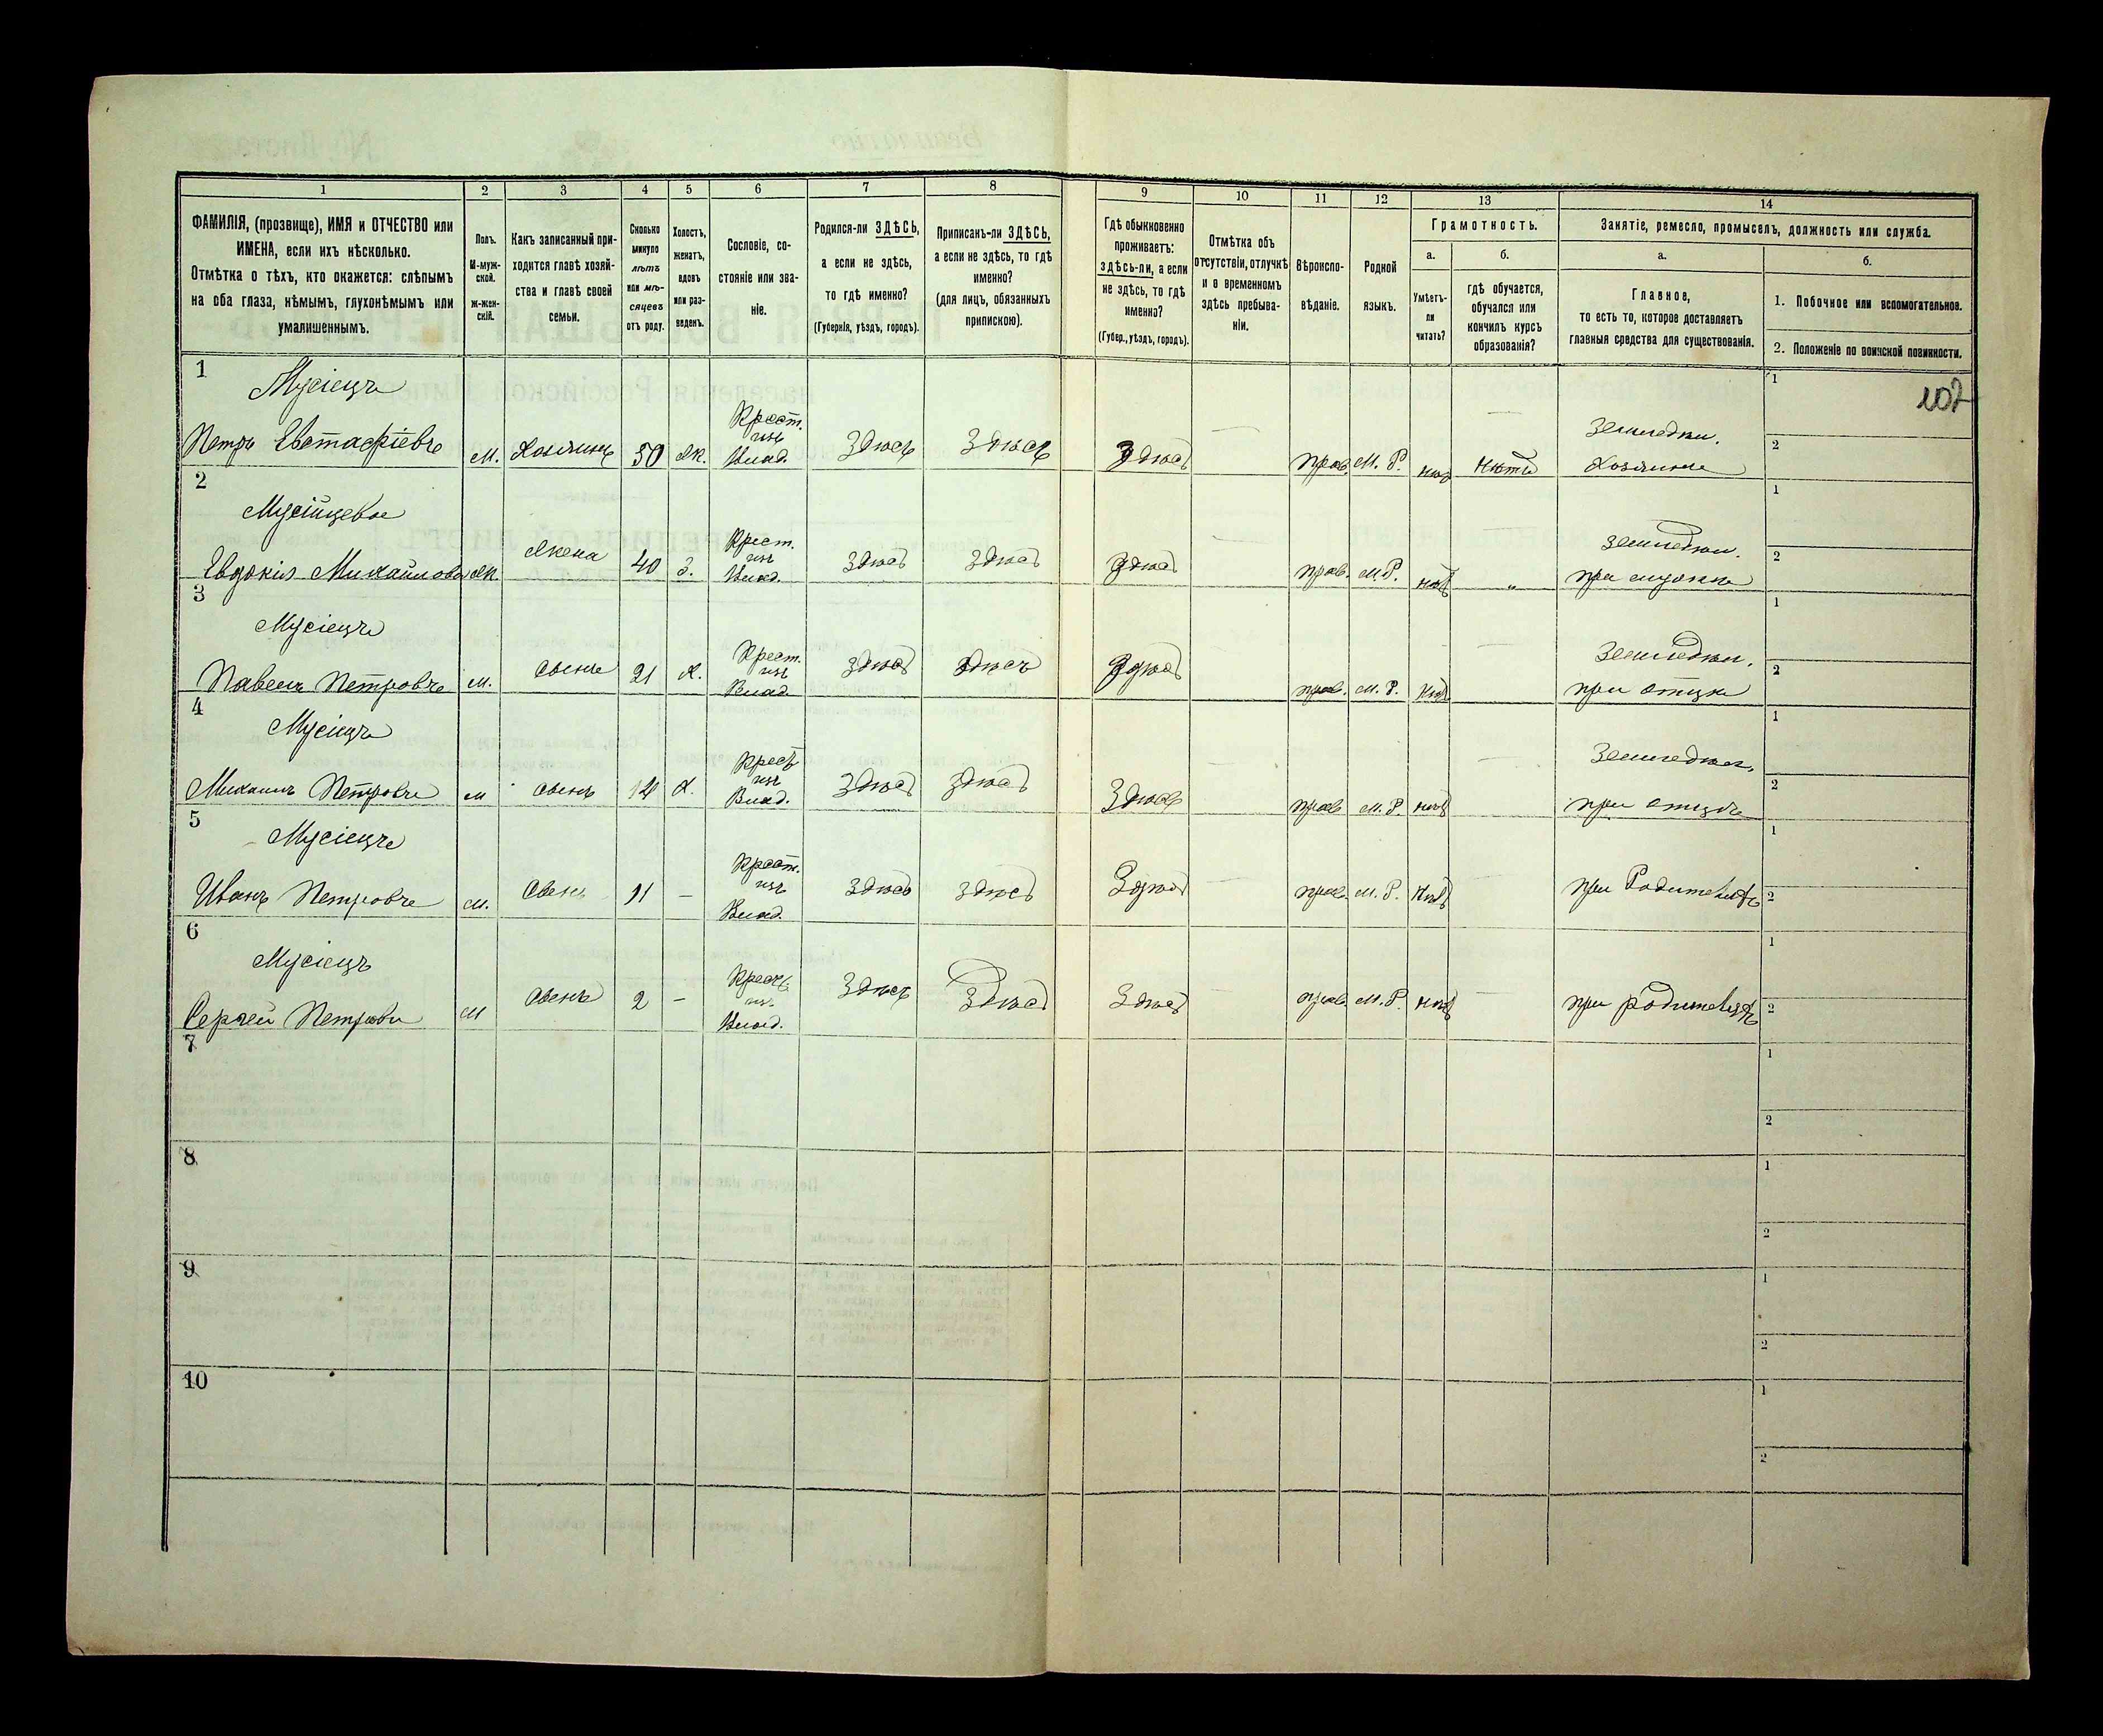 1 2 3 4 5 6 7 8 9 10 11 12 13 14
ФАМИЛІЯ, (прозвище), ИМЯ и ОТЧЕСТВО или
ИМЕНА, если ихъ нѣсколько.
Отмѣтка о тѣхъ, кто окажется: слѣпымъ
на оба глаза, нѣмымъ, глухонѣмымъ или
умалишеннымъ.
Полъ.
М-муж-
ской.
ж-жен-
скій.
Какъ записанный при-
ходится главѣ хозяй-
ства и главѣ своей
семьи.
Сколько
минуло
лѣтъ
или мѣ-
сяцевъ
отъ роду.
Холостъ,
женатъ,
вдовъ
или раз-
веденъ.
Сословіе, со-
стояніе или зва-
ніе.
Родился-ли ЗДѢСЬ,
а если не здѣсь,
то гдѣ именно?
(Губернія, уѣздъ, городъ).
Приписанъ-ли ЗДѢСЬ,
а если не здѣсь, то гдѣ
именно?
(для лицъ, обязанныхъ
припискою).
Гдѣ обыкновенно
проживаетъ:
здѣсь-ли, а если
не здѣсь, то гдѣ
именно?
(Губер., уѣздъ, городъ).
Отмѣтка объ
отсутствіи, отлучкѣ
и о временномъ
здѣсь пребыва-
ніи.
Вѣроиспо-
вѣданіе.
Родной
языкъ.
Грамотность.
а.
Умѣетъ-
ли
читать?
б.
гдѣ обучается,
обучался или
кончилъ курсъ
образованія?
Занятіе, ремесло, промыселъ, должность или служба.
а.
Главное,
то есть то, которое доставляетъ
главныя средства для существованія.
б.
1. Побочное или вспомогательное.
2. Положеніе по воинской повинности.
107
1
Мусіецъ
Петръ Евстафіевъ м. Хозяинъ 50 ж. Крест. изъ Влад. Здѣсь Здѣсь Здѣсь — прав. М. Р. нѣт Нѣтъ Земледѣл. Хозяинъ
1
2
2
Мусійцева
Евдокія Михайлова ж. жена 40 З. Крест. изъ Влад. здѣсь здѣсь здѣсь прав. М. Р. нѣт „ земледѣл. при мужѣ
1
2
3
Мусіецъ
Павелъ Петровъ м. сынъ 21 х. Крест. изъ Влад. здѣсь здѣсь здѣсь прав. М. Р. Нѣт Земледѣл. при отцѣ
1
2
4
Мусіецъ
Михаилъ Петровъ м сынъ 14 х. Крест изъ Влад. здѣсь здѣсь Здѣсь прав М. Р. нѣт Земледѣл. при отцѣ
1
2
5
Мусіецъ
Иванъ Петровъ м. сынъ 11 — Крест. изъ Влад. здѣсь здѣсь Здѣсь прав. М. Р. Нѣт при Родителяхъ
1
2
6
Мусіецъ
Сергей Петровъ м сынъ 2 — Крест. изъ Влад. Здѣсь Здѣсь Здѣсь прав. М. Р. нѣт при родителяхъ
1
2
7
1
2
8
1
2
9
1
2
10
1
2